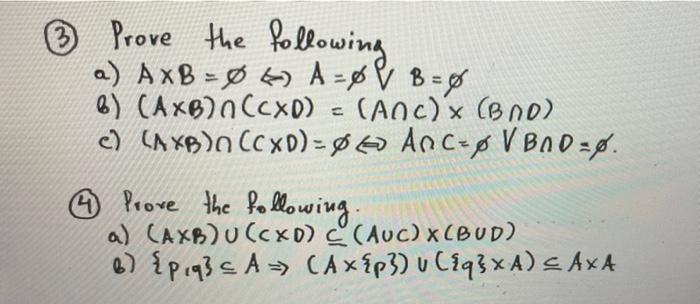 ③ Prove the following
a) A×B = ∅ ⟺ A = ∅ ∨ B = ∅
b) (A×B)∩(C×D) = (A∩C) × (B∩D)
c) (A×B)∩(C×D) = ∅ ⟺ A∩C = ∅ ∨ B∩D = ∅.
④ Prove the following.
a) (A×B)∪(C×D) ⊆ (A∪C)×(B∪D)
b) {p,q} ⊆ A ⟹ (A×{p}) ∪ ({q}×A) ⊆ A×A